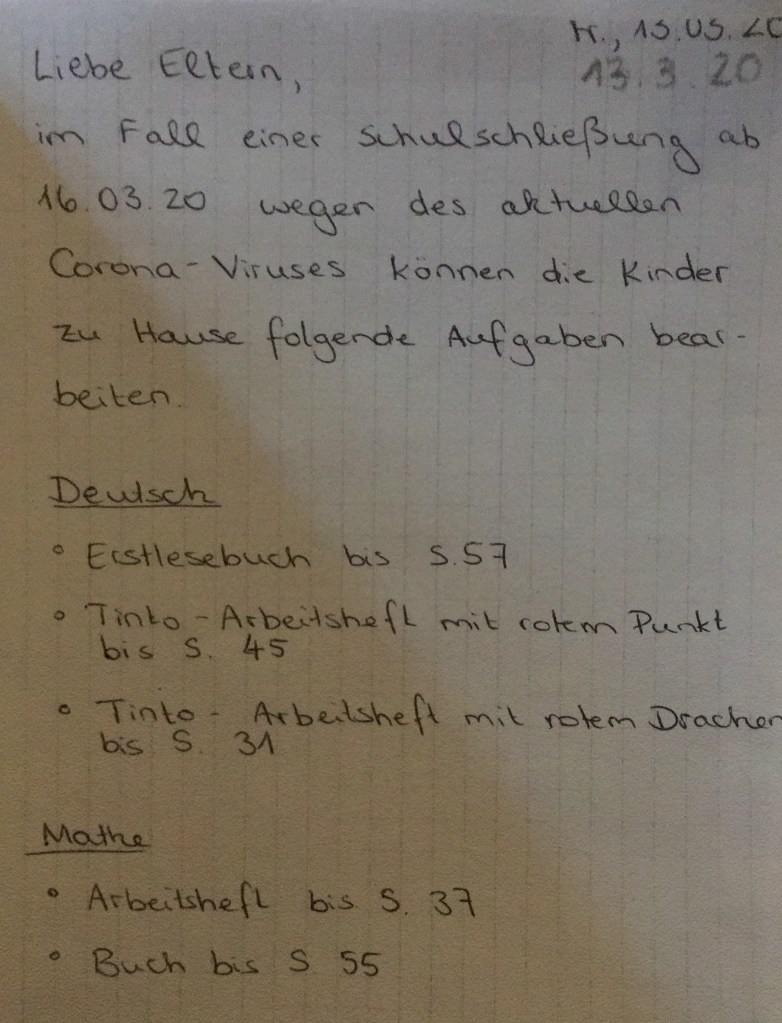 13.3.20
Liebe Eltern,
im Fall einer Schulschließung ab
16.03.20 wegen des aktuellen
Corona-Viruses können die Kinder
zu Hause folgende Aufgaben bear-
beiten.
Deutsch
• Erstlesebuch bis S.57
• Tinto-Arbeitsheft mit rotem Punkt
bis S. 45
• Tinto-Arbeitsheft mit rotem Drachen
bis S. 31
Mathe
• Arbeitsheft bis S. 37
• Buch bis S 55